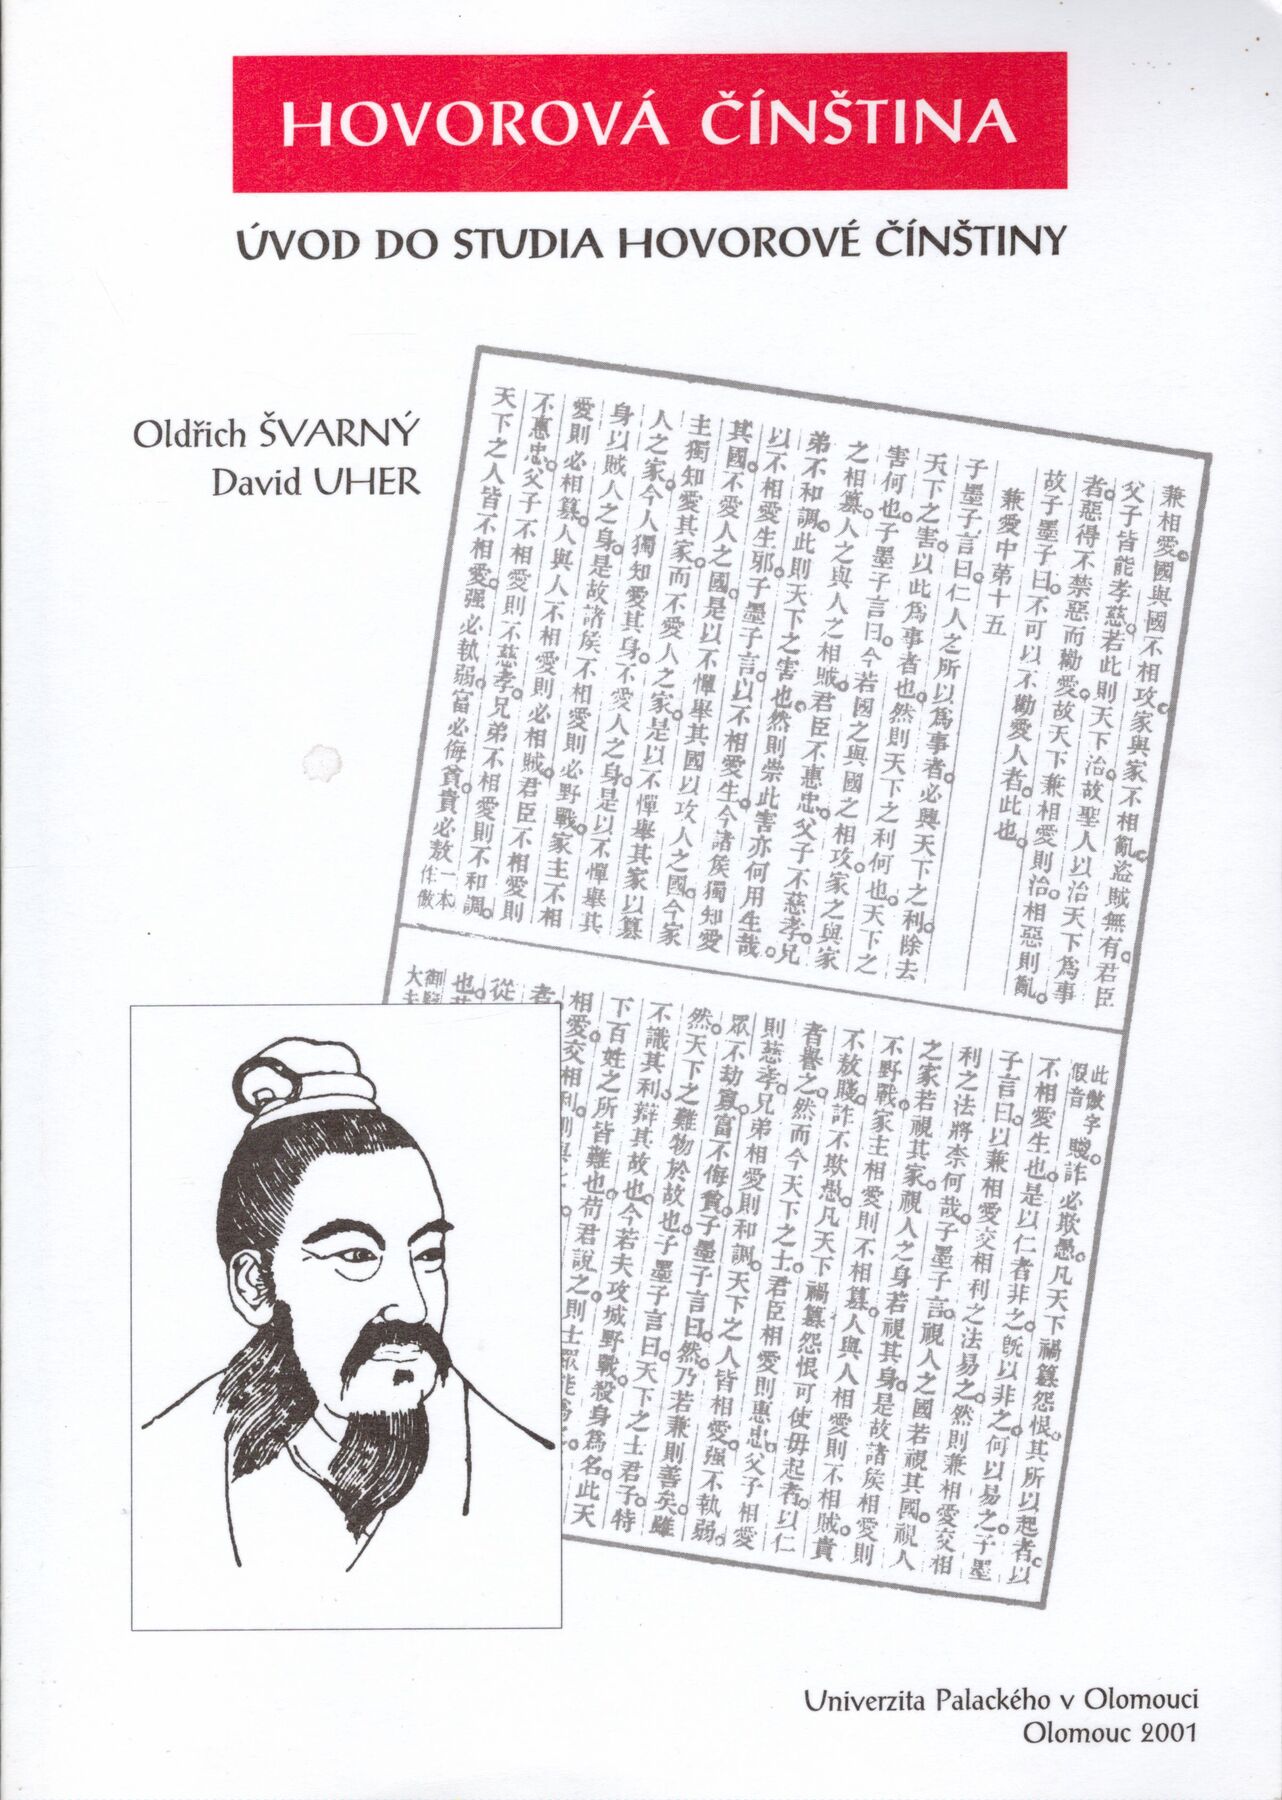 HOVOROVÁ ČÍNŠTINA
ÚVOD DO STUDIA HOVOROVÉ ČÍNŠTINY
Oldřich ŠVARNÝ
David UHER
兼相愛。國與國不相攻。家與家不相亂。盜賊無有。君臣
父子皆能孝慈。若此則天下治。故聖人以治天下爲事
者。惡得不禁惡而勸愛。故天下兼相愛則治。相惡則亂。
故子墨子曰。不可以不勸愛人者。此也。
兼愛中第十五
子墨子言曰。仁人之所以爲事者。必興天下之利。除去
天下之害。以此爲事者也。然則天下之利何也。天下之
害何也。子墨子言曰。今若國之與國之相攻。家之與家
之相篡。人之與人之相賊。君臣不惠忠。父子不慈孝。兄
弟不和調。此則天下之害也。然則崇此害亦何用生哉。
以不相愛生邪。子墨子言。以不相愛生。今諸侯獨知愛
其國。不愛人之國。是以不憚舉其國以攻人之國。今家
主獨知愛其家。而不愛人之家。是以不憚舉其家以篡
人之家。今人獨知愛其身。不愛人之身。是以不憚舉其
身以賊人之身。是故諸侯不相愛則必野戰。家主不相
愛則必相篡。人與人不相愛則必相賊。君臣不相愛則
不惠忠。父子不相愛則不慈孝。兄弟不相愛則不和調。
天下之人皆不相愛。强必執弱。富必侮貧。貴必敖一本作傲
此傲字假音。賤。詐必欺愚。凡天下禍篡怨恨。其所以起者。以
不相愛生也。是以仁者非之。既以非之。何以易之。子墨
子言曰。以兼相愛交相利之法易之。然則兼相愛交相
利之法將柰何哉。子墨子言。視人之國若視其國。視人
之家若視其家。視人之身若視其身。是故諸侯相愛則
不野戰。家主相愛則不相篡。人與人相愛則不相賊。貴
不敖賤。詐不欺愚。凡天下禍篡怨恨可使毋起者。以仁
者譽之。然而今天下之士。君臣相愛則惠忠。父子相愛
則慈孝。兄弟相愛則和調。天下之人皆相愛。强不執弱。
眾不劫寡。富不侮貧。子墨子言曰。然。乃若兼則善矣。雖
然。天下之難物於故也。子墨子言曰。天下之士君子。特
不識其利辯其故也。今若夫攻城野戰。殺身爲名。此天
下百姓之所皆難也。苟君說之。則士眾能爲
相愛交相利
者。
從
也。
御
大夫
Univerzita Palackého v Olomouci
Olomouc 2001